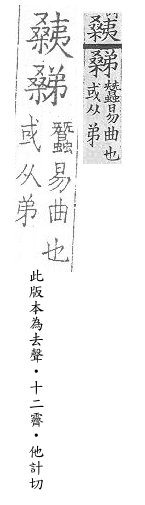 蠶易曲也
或从弟
蠶易曲也
或从弟
此版本為去聲・十二霽・他計切